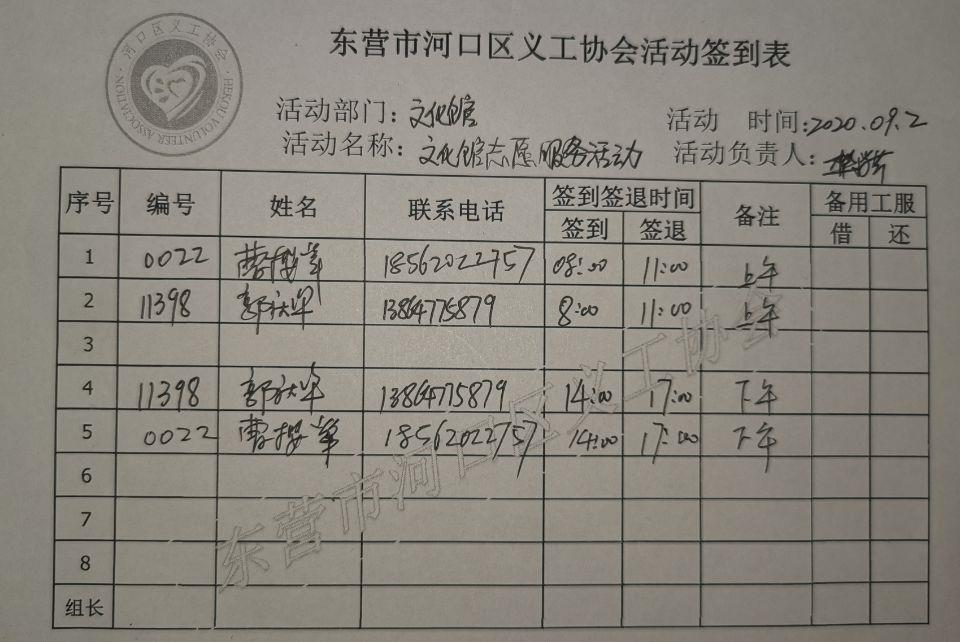 东营市河口区义工协会活动签到表
河口区义工协会
HEKOU VOLUNTEER ASSOCIATION
活动部门：文化馆 活动 时间：2020.09.2
活动名称：文化馆志愿服务活动 活动负责人：
序号 编号 姓名 联系电话 签到签退时间 备注 备用工服
签到 签退 借 还
1 0022 曹 18562022757 08:00 11:00 上午
2 11398 郭秋华 13864775879 8:00 11:00 上午
3
4 11398 郭秋华 13864775879 14:00 17:00 下午
5 0022 曹 18562022757 14:00 17:00 下午
6
7
8
组长
东营市河口区义工协会